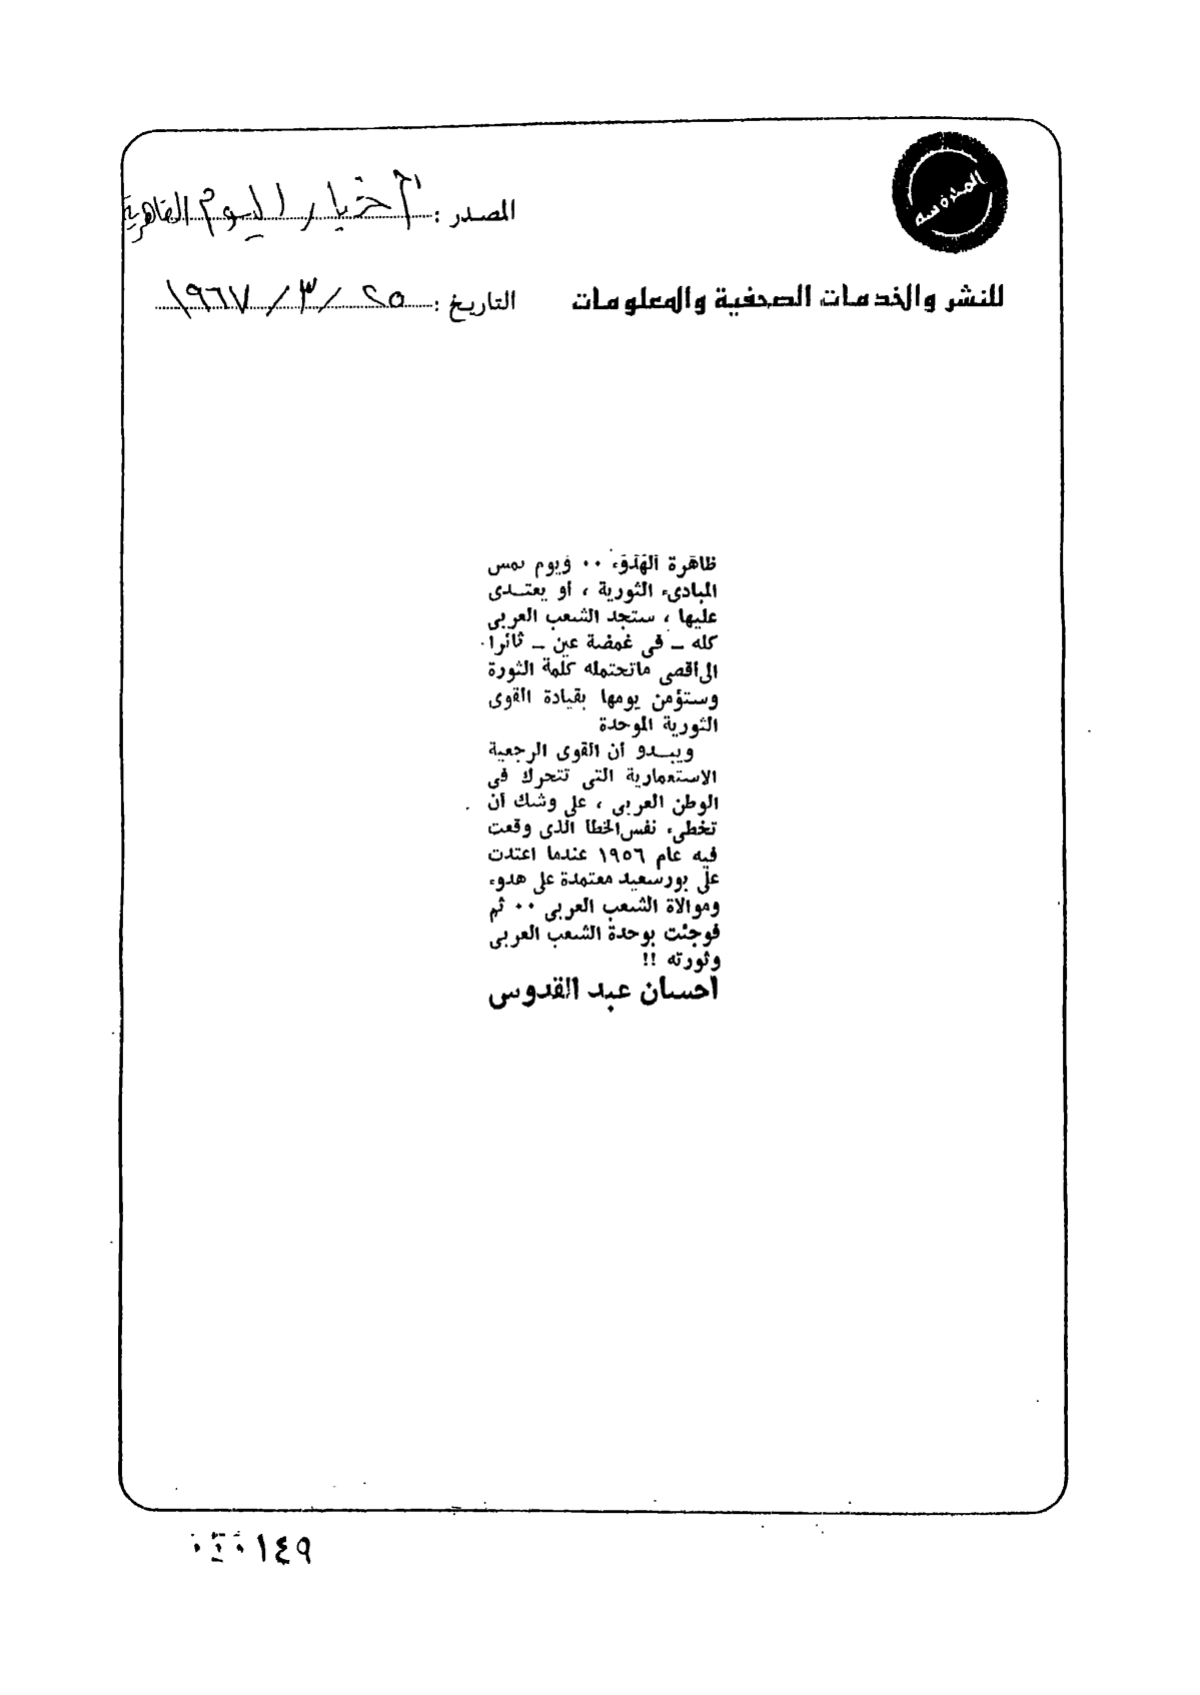 المصدر : أخبار اليوم القاهرية
للنشر والخدمات الصحفية والمعلومات التاريخ : ٢٥ / ٣ / ١٩٦٧
ظاهرة الهدوء ٠٠ ويوم تمس
المبادىء الثورية ، أو يعتدى
عليها ، ستجد الشعب العربى
كله ـ فى غمضة عين ـ ثائرا
الى أقصى ماتحتمله كلمة الثورة
وستؤمن يومها بقيادة القوى
الثورية الموحدة
ويبدو أن القوى الرجعية
الاستعمارية التى تتحرك فى
الوطن العربى ، على وشك أن
تخطىء نفس الخطأ الذى وقعت
فيه عام ١٩٥٦ عندما اعتدت
على بورسعيد معتمدة على هدوء
وموالاة الشعب العربى ٠٠ ثم
فوجئت بوحدة الشعب العربى
وثورته !!
احسان عبد القدوس